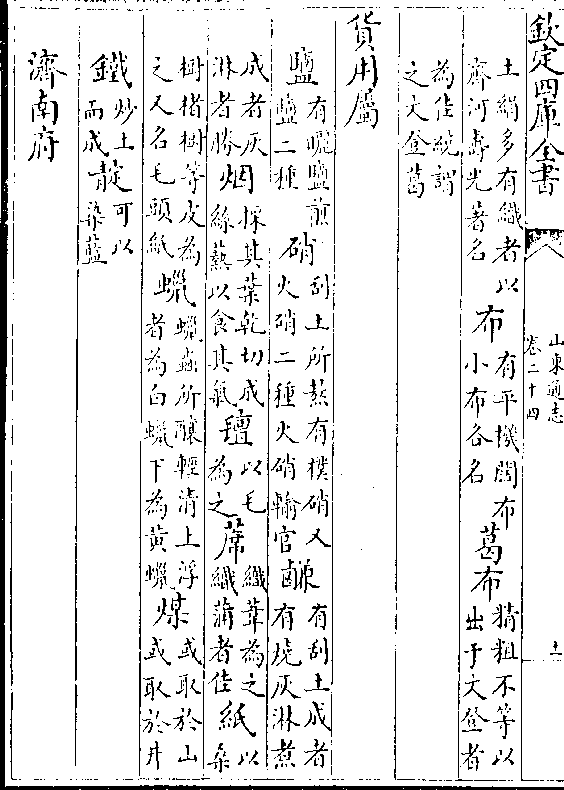 欽定四庫全書
山東通志
卷二十四
十一
土絹多有織者以齊河壽光著名布有平機闊布小布各名葛布精粗不等以出于文登者
為佳統謂之文登葛
貨用屬
鹽有曬鹽煎鹽二種硝刮土所熬有樸硝又火硝二種火硝輸官鹻有刮土成者有燒灰淋煮
成者灰淋者勝烟採其葉乾切成絲爇以食其氣氊以毛為之蓆織葦為之織蒲者佳紙以桑
樹楮樹等皮為之又名毛頭紙蠟蠟蟲所釀輕清上浮者為白蠟下為黃蠟煤或取於山或取於井
鐵炒土而成靛可以染藍
濟南府